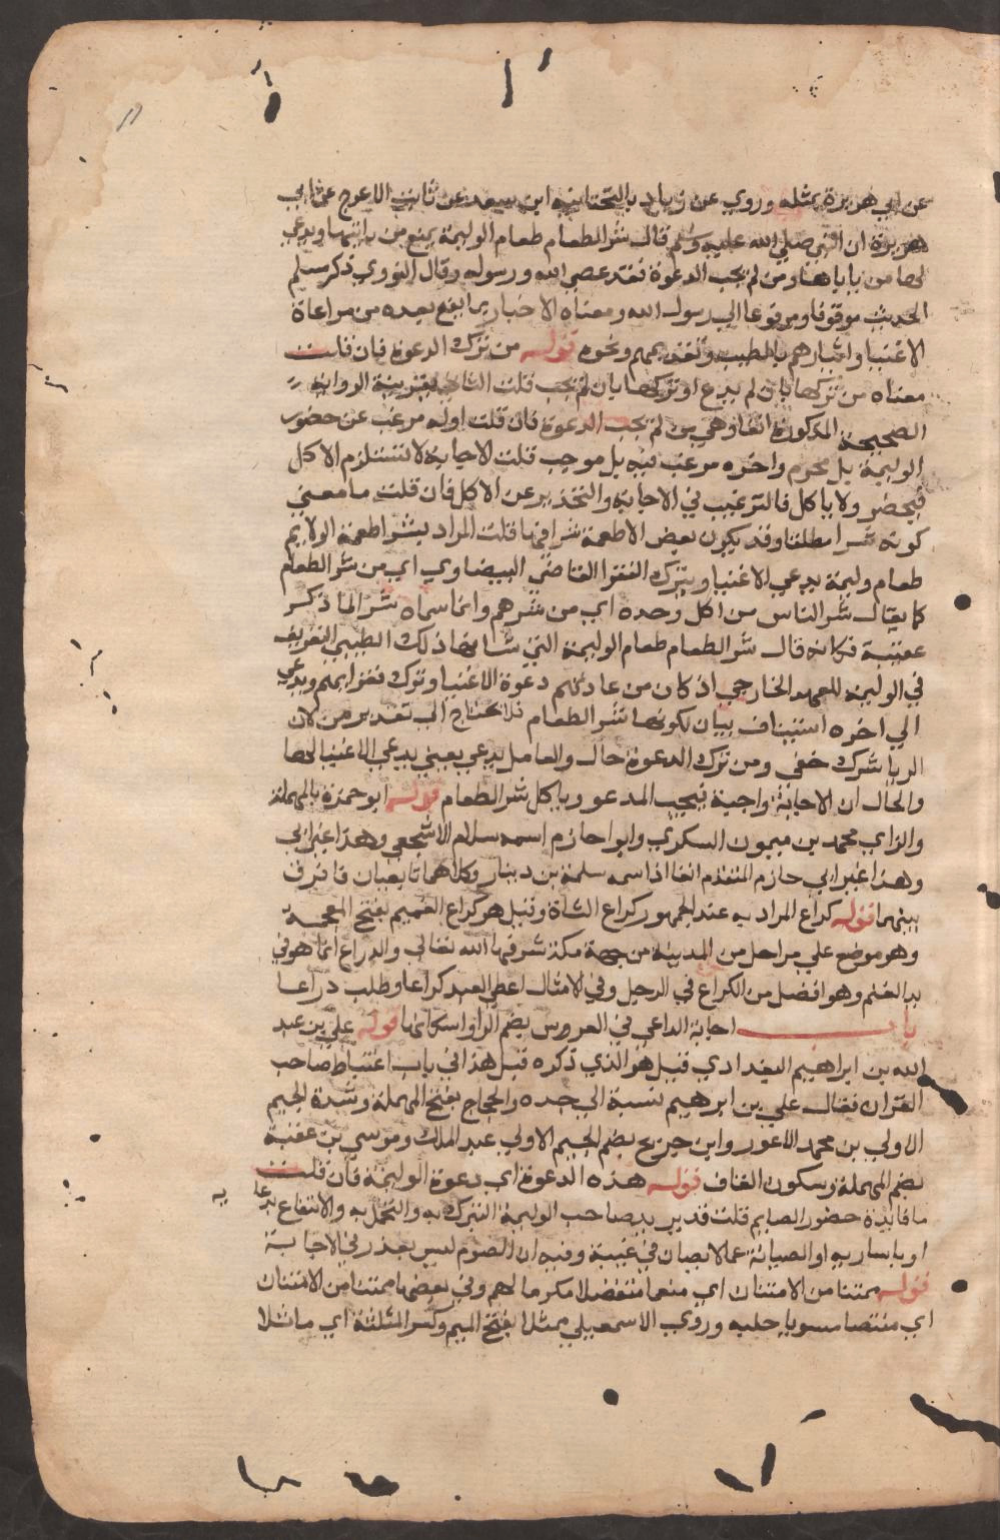 عن ابي هريرة بمثله وروي عن زياد بالتحتانية ابن سعد عن ثابت الاعرج عن ابي
هريرة ان النبي صلي الله عليه وسلم قال شر الطعام طعام الوليمة يمنع من ياتيها ويدعي
لها من ياباها ومن لم يجب الدعوة فقد عصي الله ورسوله وقال النووي ذكر مسلم
الحديث موقوفا ومرفوعا الي رسول الله ومعناه الاخبار بما يقع بعده من مراعاة
الاغنيا وايثارهم بالطيب وتقديمهم ونحوه قوله من ترك الدعوة فان قلت
معناه من تركها بان لم يدع او تركها بان لم يجب قلت الثاني بقرينة الرواية
الصحيحة المذكورة انفا وهي من لم يجب الدعوة فان قلت اوله مرغب عن حضور
الوليمة بل محرم واخره مرغب فيه بل موجب قلت الاجابة لا تستلزم الاكل
فيحضر ولا ياكل فالترغيب في الاجابة والتحذير عن الاكل فان قلت ما معني
كونه شرا مطلقا وقد يكون بعض الاطعمة شرا منها قلت المراد بشر اطعمة الولايم
طعام وليمة يدعي الاغنيا ويترك الفقرا القاضي البيضاوي اي من شر الطعام
كما يقال شر الناس من اكل وحده اي من شرهم وانما سماه شرا لما ذكر
عقيبه فكانه قال شر الطعام طعام الوليمة التي شانها ذلك الطيبي التعريف
في الوليمة للعهد الخارجي اذ كان من عادتهم دعوة الاغنيا وترك فقرايهم ويدعي
الي اخره استيناف بيان لكونها شر الطعام فلا يحتاج الي تقدير من لان
الريا شرك خفي ومن ترك الدعوة حال والعامل يدعي يعني يدعي الاغنيا لها
والحال ان الاجابة واجبة فيجيب المدعو وياكل شر الطعام قوله ابو حمزة بالمهملة
والزاي محمد بن ميمون السكري وابو حازم اسمه سلمان الاشجعي وهذا غير ابي
وهذا غير ابي حازم المتقدم انفا اذ اسمه سلمة بن دينار وكلاهما تابعيان فافرق
بينهما قوله كراع المراد به عند الجمهور كراع الشاة وقيل هو كراع الغميم بفتح المعجمة
وهو موضع علي مراحل من المدينة من جهة مكة شرفها الله تعالي والذراع انما هو في
يد الغنم وهو افضل من الكراع في الرجل وفي الامثال اعطي العبد كراعا وطلب ذراعا
باب اجابة الداعي في العروس بضم الراو اسكانها قوله علي بن عبد
الله بن ابراهيم البغدادي قيل هو الذي ذكره قبل هذا في باب اغتباط صاحب
القران فقال علي بن ابرهيم نسبة الي جده والحجاج بفتح المهملة وشدة الجيم
الاولي بن محمد الاعور وابن جريج بضم الجيم الاولي عبد الملك وموسي بن عقبة
بضم المهملة وسكون القاف قوله هذه الدعوة اي دعوة الوليمة فان قلت
ما فايدة حضور الصايم قلت قد يريد صاحب الوليمة التبرك به والتجمل به والانتفاع بدعايه
او باشارته او الصيانة عما لا يصان في غيبته وفيه ان الصوم ليس بعذر في الاجابة
قوله ممتنا من الامتنان اي منعما متفضلا مكرما لهم وفي بعضها ممتنا من الامتنان
اي منتصبا مستويا رجليه وروي الاسمعيلي ممثلا بفتح الميم وكسر المثلثة اي ماثلا